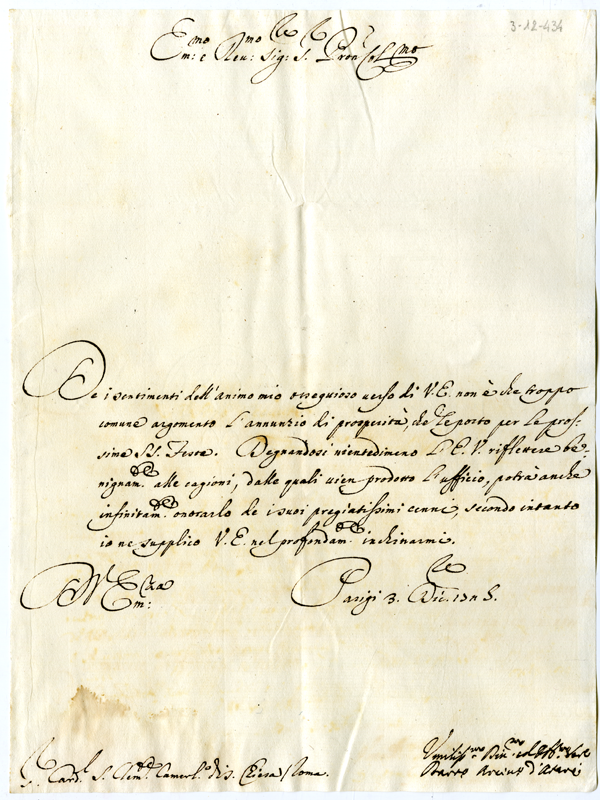 3-12-434
Em:mo e Reu:mo Sig: S. Pron Col.mo
De i sentimenti dell'animo mio ossequioso verso di V.E. non è che troppo
comune argomento l'annunzio di prosperità, che le porto per le pros-
sime SS. Feste. Degnandosi nientedimeno l'E.V. riflettere be-
nignam. alle cagioni, dalle quali vien prodotto l'ufficio, potrà anche
infinitam. onorarlo de i suoi pregiatissimi cenni, secondo intanto
io ne supplico V.E. nel profondam. inchinarmi.
Em:
Parigi 3. Dic.
S. Card. S. Clem. Camerl.o di S. Chiesa / Roma.
Umiliss.mo
d'Atene